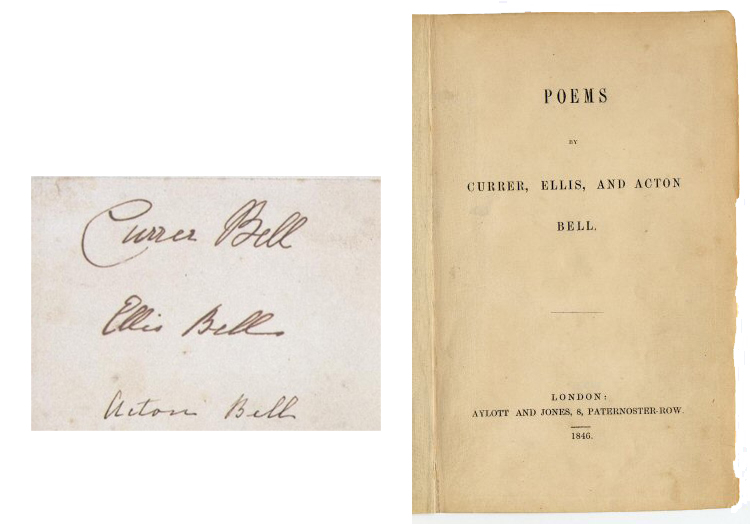 Currer Bell
Ellis Bell
Acton Bell
POEMS
BY
CURRER, ELLIS, AND ACTON
BELL.
LONDON:
AYLOTT AND JONES, 8, PATERNOSTER-ROW.
1846.